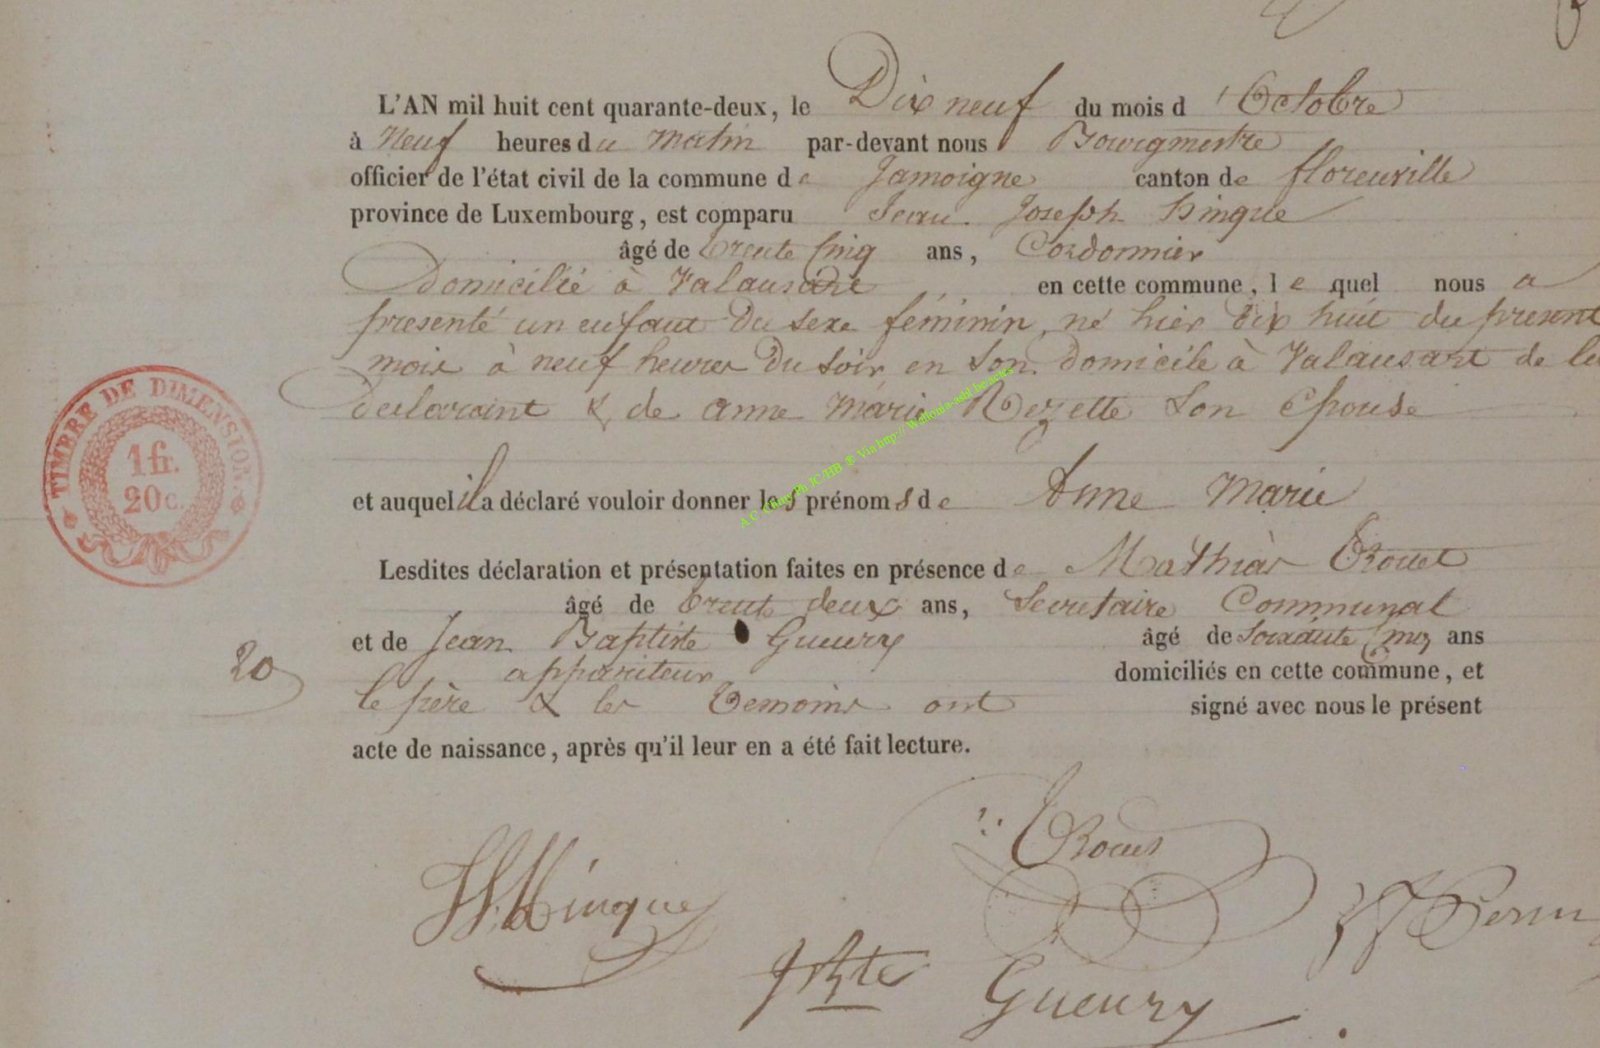 L'AN mil huit cent quarante-deux, le Dix neuf du mois d'Octobre
à Neuf heures du Matin par-devant nous Bourgmestre
officier de l'état civil de la commune de Jamoigne canton de florenville
province de Luxembourg, est comparu Jean Joseph Hinque
âgé de trente Cinq ans, Cordonnier
Domicilié à Valansart en cette commune, lequel nous a
presenté un enfant Du sexe féminin, né hier dix huit du present
mois à neuf heures Du soir en son domicile à Valansart de lui
declarant & de anne Marie Rezette Son Epouse
et auquel il a déclaré vouloir donner les prénoms de Anne Marie
Lesdites déclaration et présentation faites en présence de Mathias
âgé de trent deux ans, Secretaire Communal
et de Jean Baptiste Gueury âgé de Soixante Cinq ans
appariteur domiciliés en cette commune, et
le père & les temoins ont signé avec nous le présent
acte de naissance, après qu'il leur en a été fait lecture.
TIMBRE DE DIMENSION.
1 fr.
20 c.
20
Hinque
JBte Gueury